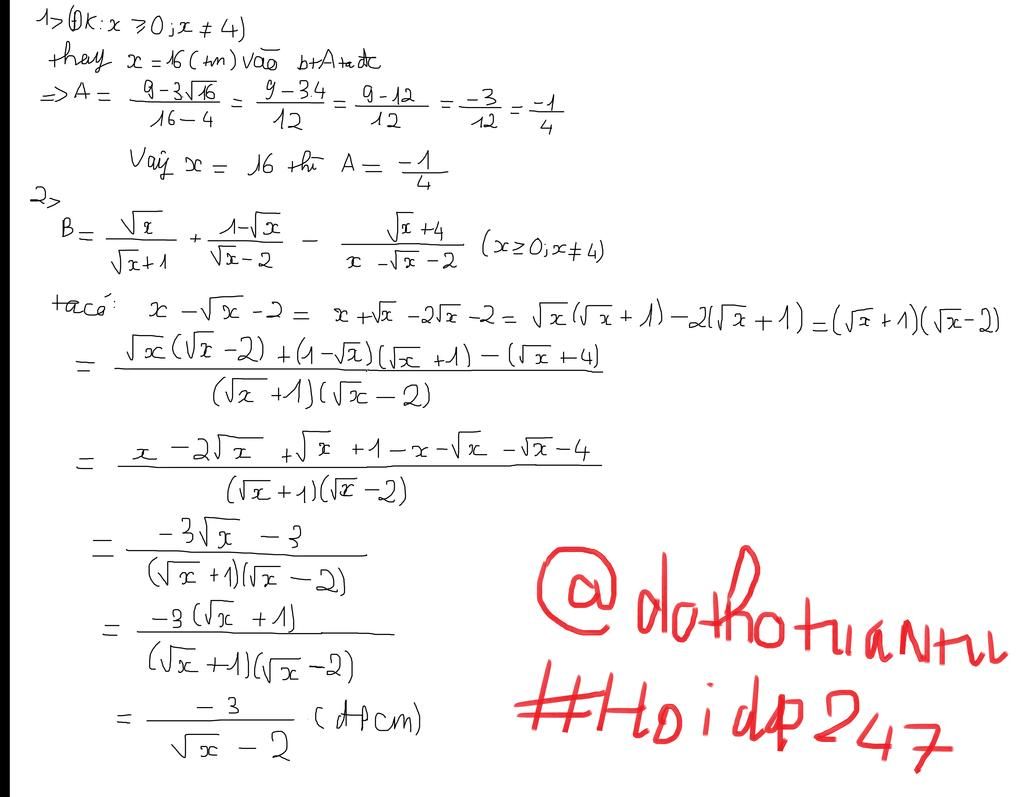 1> (ĐK: x ≥ 0; x ≠ 4)
thay x = 16 (tm) vào bt A ta đc
=> A = (9 - 3√16)/(16 - 4) = (9 - 3.4)/12 = (9 - 12)/12 = -3/12 = -1/4
Vậy x = 16 thì A = -1/4
2>
B = √x/(√x + 1) + (1 - √x)/(√x - 2) - (√x + 4)/(x - √x - 2) (x ≥ 0; x ≠ 4)
ta có: x - √x - 2 = x + √x - 2√x - 2 = √x(√x + 1) - 2(√x + 1) = (√x + 1)(√x - 2)
= (√x(√x - 2) + (1 - √x)(√x + 1) - (√x + 4))/((√x + 1)(√x - 2))
= (x - 2√x + √x + 1 - x - √x - √x - 4)/((√x + 1)(√x - 2))
= (-3√x - 3)/((√x + 1)(√x - 2))
= (-3(√x + 1))/((√x + 1)(√x - 2))
= -3/(√x - 2) (đpcm)
@dothotuantu
#Hoidap247